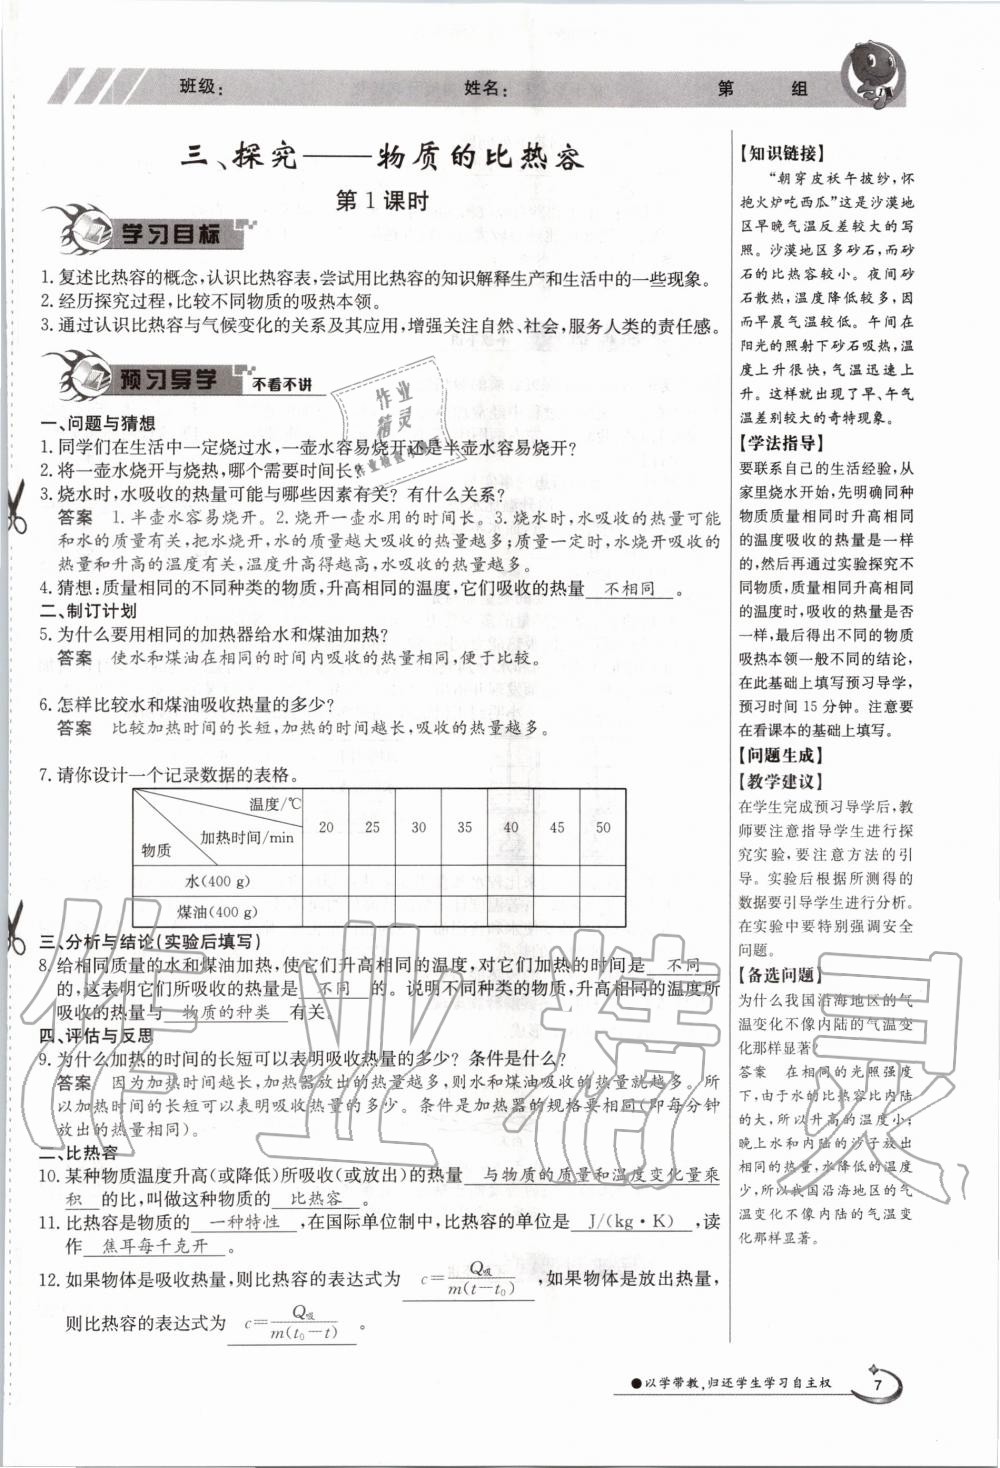 班级： 姓名： 第 组
三、探究——物质的比热容
第1课时
学习目标
1. 复述比热容的概念,认识比热容表,尝试用比热容的知识解释生产和生活中的一些现象。
2. 经历探究过程,比较不同物质的吸热本领。
3. 通过认识比热容与气候变化的关系及其应用,增强关注自然、社会,服务人类的责任感。
预习导学 不看不讲
一、问题与猜想
1. 同学们在生活中一定烧过水,一壶水容易烧开还是半壶水容易烧开?
2. 将一壶水烧开与烧热,哪个需要时间长?
3. 烧水时,水吸收的热量可能与哪些因素有关? 有什么关系?
答案 1.半壶水容易烧开。2.烧开一壶水用的时间长。3.烧水时,水吸收的热量可能
和水的质量有关,把水烧开,水的质量越大吸收的热量越多;质量一定时,水烧开吸收的
热量和升高的温度有关,温度升高得越高,水吸收的热量越多。
4. 猜想:质量相同的不同种类的物质,升高相同的温度,它们吸收的热量 不相同 。
二、制订计划
5. 为什么要用相同的加热器给水和煤油加热?
答案 使水和煤油在相同的时间内吸收的热量相同,便于比较。
6. 怎样比较水和煤油吸收热量的多少?
答案 比较加热时间的长短,加热的时间越长,吸收的热量越多。
7. 请你设计一个记录数据的表格。
温度/℃
加热时间/min
物质
20 25 30 35 40 45 50
水(400 g)
煤油(400 g)
三、分析与结论(实验后填写)
8. 给相同质量的水和煤油加热,使它们升高相同的温度,对它们加热的时间是 不同
的,这表明它们所吸收的热量是 不同 的。说明不同种类的物质,升高相同的温度所
吸收的热量与 物质的种类 有关。
四、评估与反思
9. 为什么加热的时间的长短可以表明吸收热量的多少? 条件是什么?
答案 因为加热时间越长,加热器放出的热量越多,则水和煤油吸收的热量就越多。所
以加热时间的长短可以表明吸收热量的多少。条件是加热器的规格要相同(即每分钟
放出的热量相同)。
二、比热容
10. 某种物质温度升高(或降低)所吸收(或放出)的热量 与物质的质量和温度变化量乘
积 的比,叫做这种物质的 比热容 。
11. 比热容是物质的 一种特性 ,在国际单位制中,比热容的单位是 J/(kg·K) ,读
作 焦耳每千克开 。
12. 如果物体是吸收热量,则比热容的表达式为 c=Q吸/m(t−t₀) ,如果物体是放出热量,
则比热容的表达式为 c=Q吸/m(t₀−t) 。
【知识链接】
“朝穿皮袄午披纱,怀
抱火炉吃西瓜”这是沙漠地
区早晚气温反差较大的写
照。沙漠地区多砂石,而砂
石的比热容较小。夜间砂
石散热,温度降低较多,因
而早晨气温较低。午间在
阳光的照射下砂石吸热,温
度上升很快,气温迅速上
升。这样就出现了早、午气
温差别较大的奇特现象。
【学法指导】
要联系自己的生活经验,从
家里烧水开始,先明确同种
物质质量相同时升高相同
的温度吸收的热量是一样
的,然后再通过实验探究不
同物质,质量相同升高相同
的温度时,吸收的热量是否
一样,最后得出不同的物质
吸热本领一般不同的结论,
在此基础上填写预习导学,
预习时间15分钟。注意要
在看课本的基础上填写。
【问题生成】
【教学建议】
在学生完成预习导学后,教
师要注意指导学生进行探
究实验,要注意方法的引
导。实验后根据所测得的
数据要引导学生进行分析。
在实验中要特别强调安全
问题。
【备选问题】
为什么我国沿海地区的气
温变化不像内陆的气温变
化那样显著?
答案 在相同的光照强度
下,由于水的比热容比内陆
的大,所以升高的温度小;
晚上水和内陆的沙子放出
相同的热量,水降低的温度
少,所以我国沿海地区的气
温变化不像内陆的气温变化
那样显著。
●以学带教,归还学生学习自主权
7
作业精灵
作业精灵